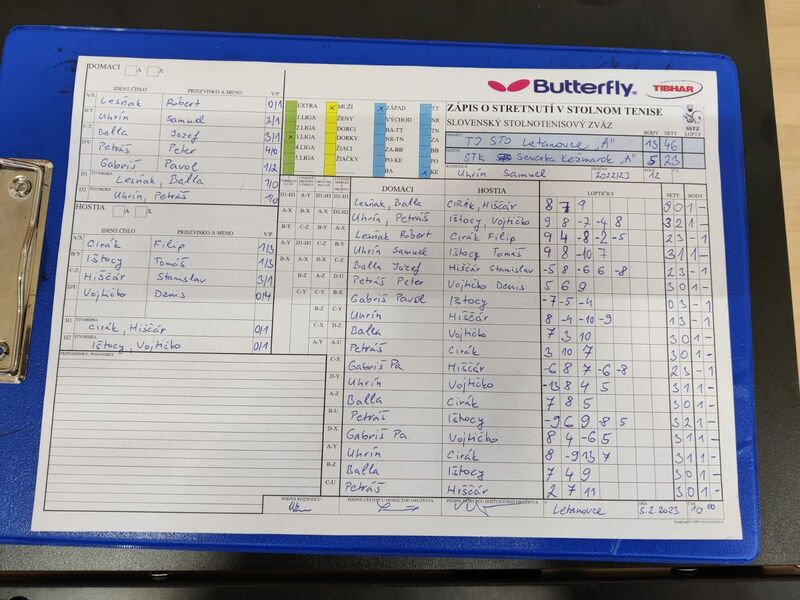 DOMÁCI A X
IDENT.ČÍSLO PRIEZVISKO A MENO V/P
A/X Lesňak Róbert 0/1
B/Y Uhrín Samuel 3/1
C/Z Balla Jozef 3/1
D/U Petráš Peter 4/0
Gabriš Pavol 1/2
D1 Lesňak, Balla 1/0
D2 Uhrín, Petráš 1/0
HOSTIA A X
IDENT.ČÍSLO PRIEZVISKO A MENO V/P
A/X Cirák Filip 1/3
B/Y Ištocy Tomáš 1/3
C/Z Hiščár Stanislav 3/1
D/U Vojtičko Denis 0/4
H1 ŠTVORHRA Cirák, Hiščár 0/1
H2 ŠTVORHRA Ištocy, Vojtičko 0/1
PRIPOMIENKY, POZNÁMKY
EXTRA x MUŽI x ZÁPAD TT
1.LIGA ŽENY VÝCHOD NR
2.LIGA DORCI BA-TT TN
x 3.LIGA DORKY NR-TN ZA
4.LIGA ŽIACI ZA-BB BB
5.LIGA ŽIAČKY PO-KE PO
BA x KE
Butterfly TIBHAR
ZÁPIS O STRETNUTÍ V STOLNOM TENISE
SLOVENSKÝ STOLNOTENISOVÝ ZVÄZ SSTZ
BODY SETY LOPTY
DOMÁCI TJ STO Letanovce "A" 13 46
HOSTIA STK Severka Kežmarok "A" 5 23
ROZHODCA Uhrín Samuel 2022/23 KOLO 12
DOMÁCI HOSTIA LOPTIČKY SETY BODY
Lesňak, Balla Cirák, Hiščár 8 7 9 3 0 1 -
Uhrín, Petráš Ištocy, Vojtičko 9 8 -7 -4 8 3 2 1 -
Lesňak Róbert Cirák Filip 9 4 -8 -2 -5 2 3 - 1
Uhrín Samuel Ištocy Tomáš 9 8 -10 7 3 1 1 -
Balla Jozef Hiščár Stanislav -5 8 -6 6 -8 2 3 - 1
Petráš Peter Vojtičko Denis 5 6 9 3 0 1 -
Gabriš Pavol Ištocy -7 -5 -4 0 3 - 1
Uhrín Hiščár 8 -4 -10 -9 1 3 - 1
Balla Vojtičko 7 3 10 3 0 1 -
Petráš Cirák 3 10 7 3 0 1 -
Gabriš Pa. Hiščár -6 8 7 -6 -8 2 3 - 1
Uhrín Vojtičko -13 8 4 5 3 1 1 -
Balla Cirák 7 8 5 3 0 1 -
Petráš Ištocy -9 6 9 -8 5 3 2 1 -
Gabriš Pa. Vojtičko 8 4 -6 5 3 1 1 -
Uhrín Cirák 8 -9 13 7 3 1 1 -
Balla Ištocy 7 4 9 3 0 1 -
Petráš Hiščár 2 7 11 3 0 1 -
PODPIS ROZHODCU PODPIS ZÁSTUPCU DOMÁCEHO DRUŽSTVA PODPIS ZÁSTUPCU HOSŤUJÚCEHO DRUŽSTVA
V Letanovce DŇA 5.2.2023 ČAS 10 00